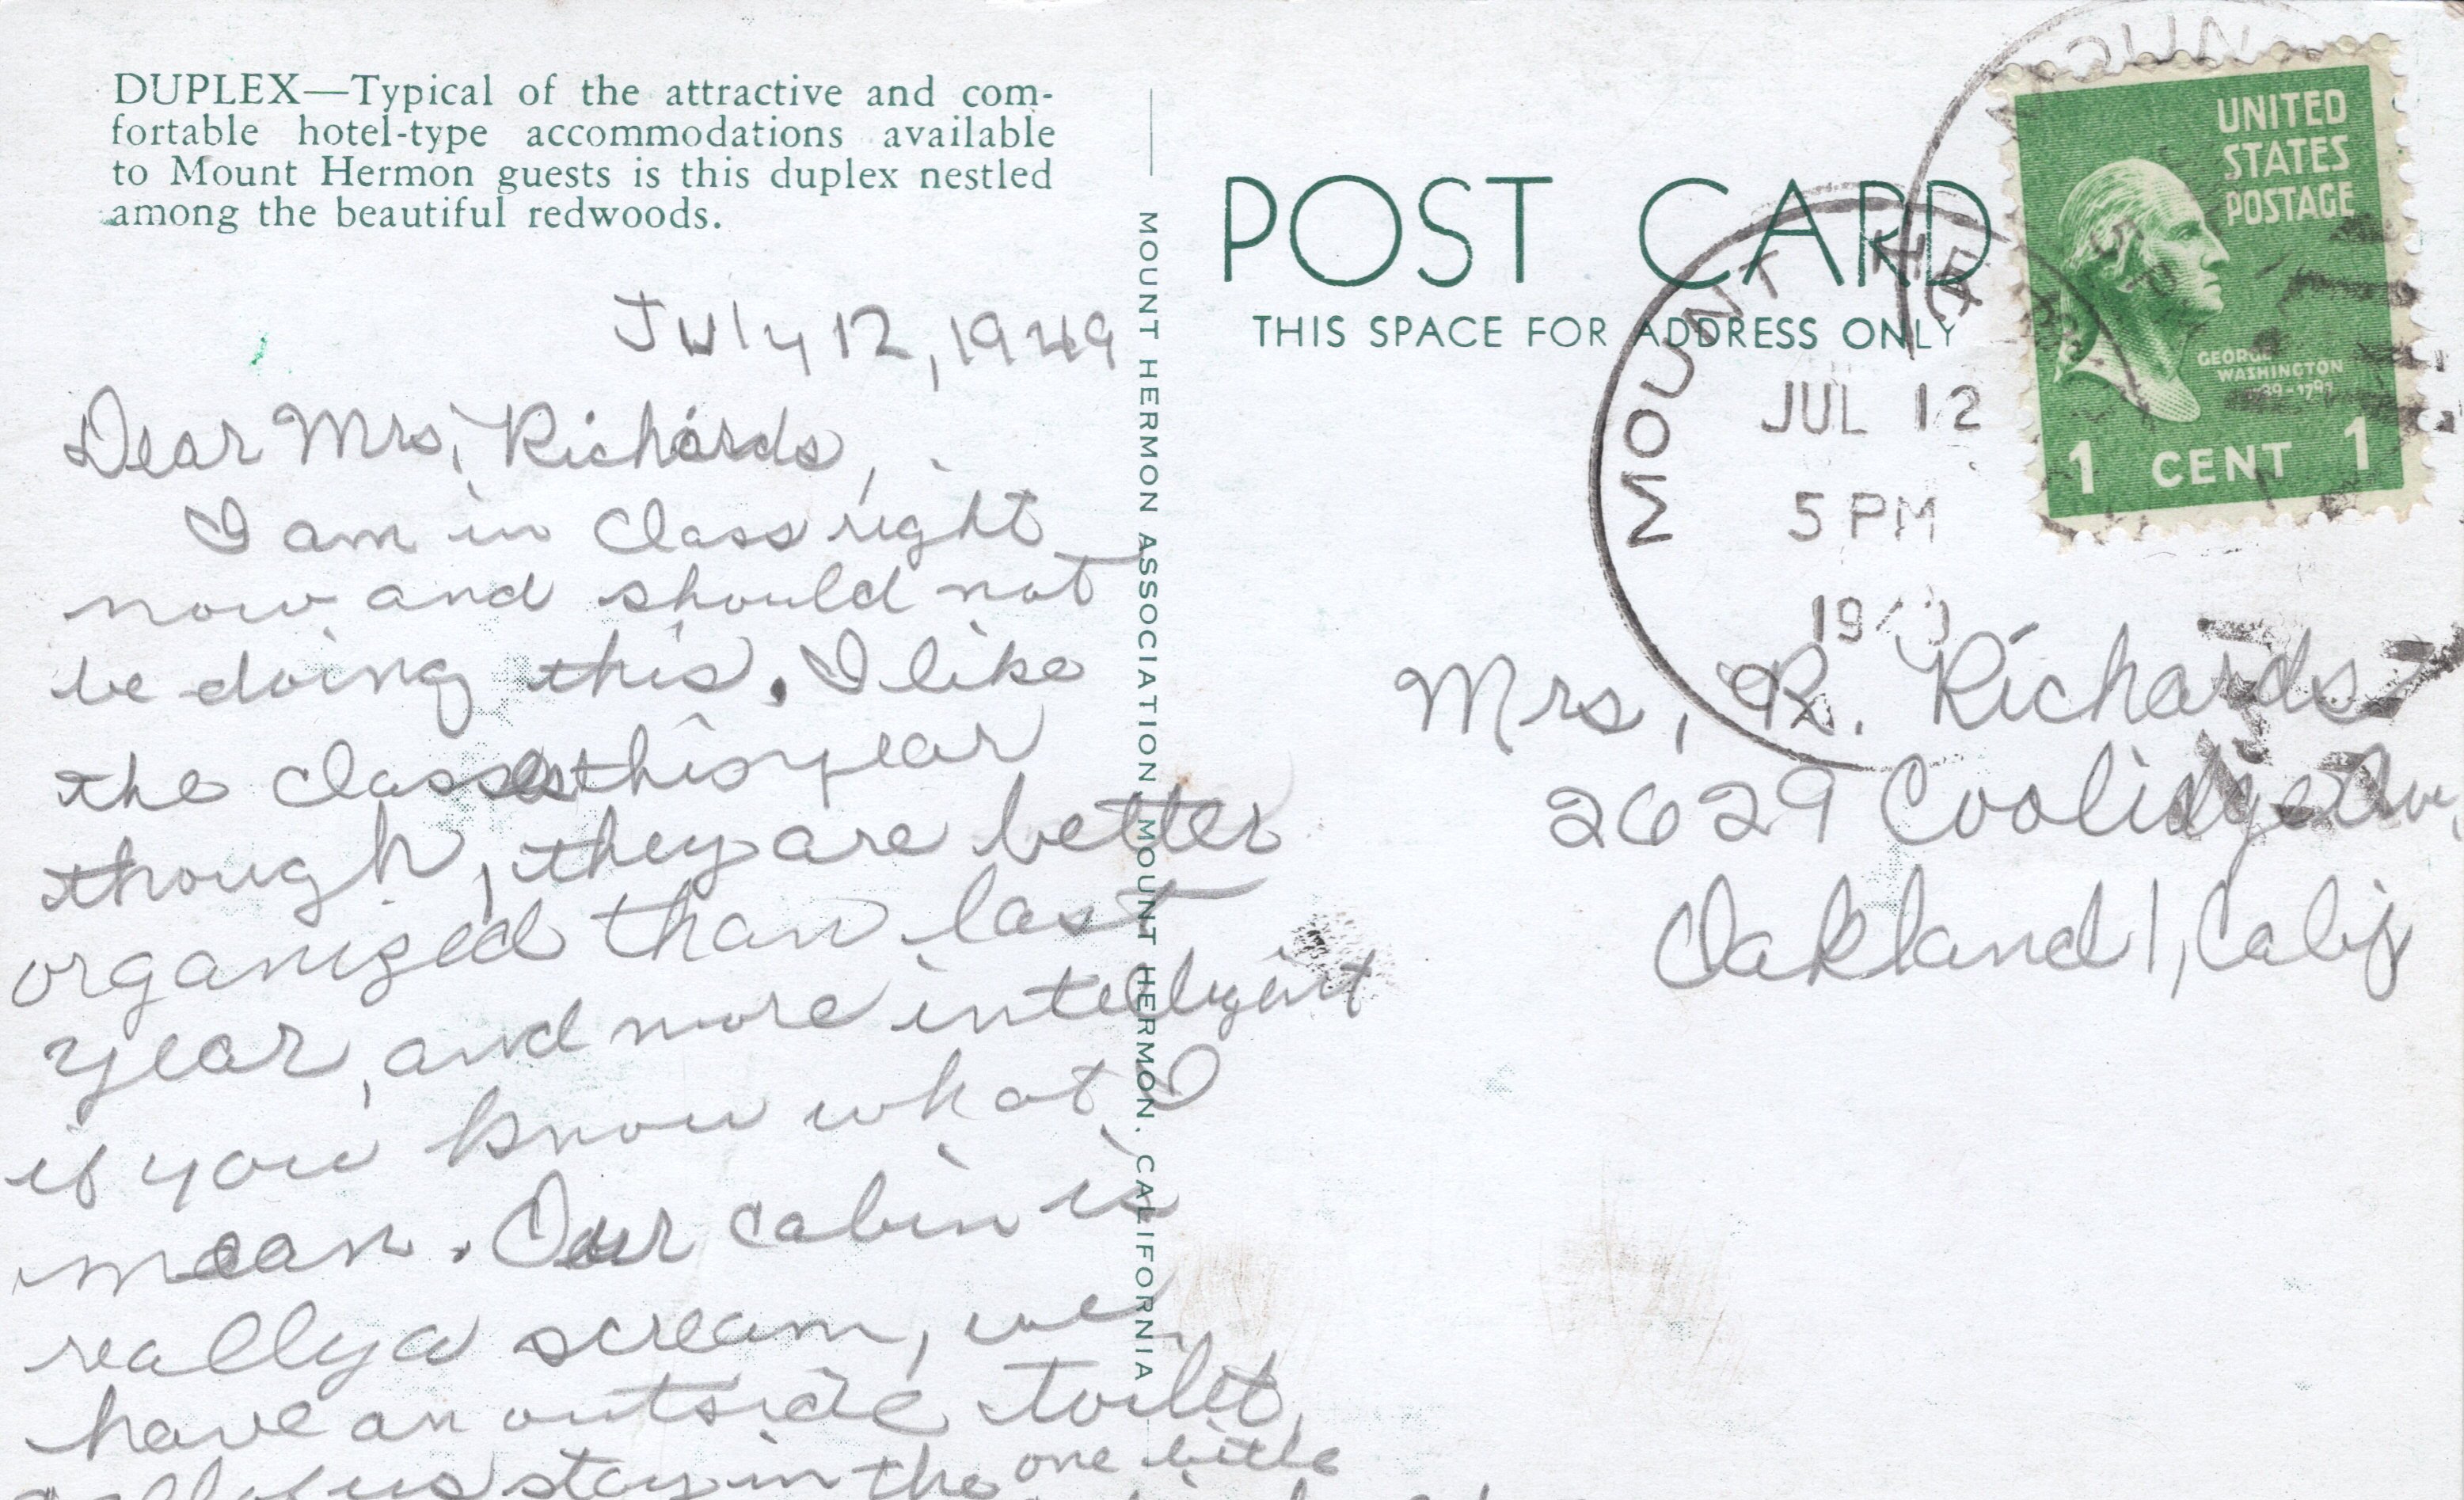 DUPLEX—Typical of the attractive and com-
fortable hotel-type accommodations available
to Mount Hermon guests is this duplex nestled
among the beautiful redwoods.
July 12, 1949
Dear Mrs. Richards,
I am in class right
now and should not
be doing this. I like
the classes this year
though, they are better
organized than last
year, and more intelligent
if you know what I
mean. Our cabin is
really a scream, we
have an outside toilet,
all of us stay in the one little
MOUNT HERMON ASSOCIATION, MOUNT HERMON, CALIFORNIA
POST CARD
THIS SPACE FOR ADDRESS ONLY
UNITED
STATES
POSTAGE
GEORGE
WASHINGTON
1 CENT 1
MOUNT HER
JUL 12
5 PM
Mrs. R. Richards
2629 Coolidge Ave,
Oakland 1, Calif